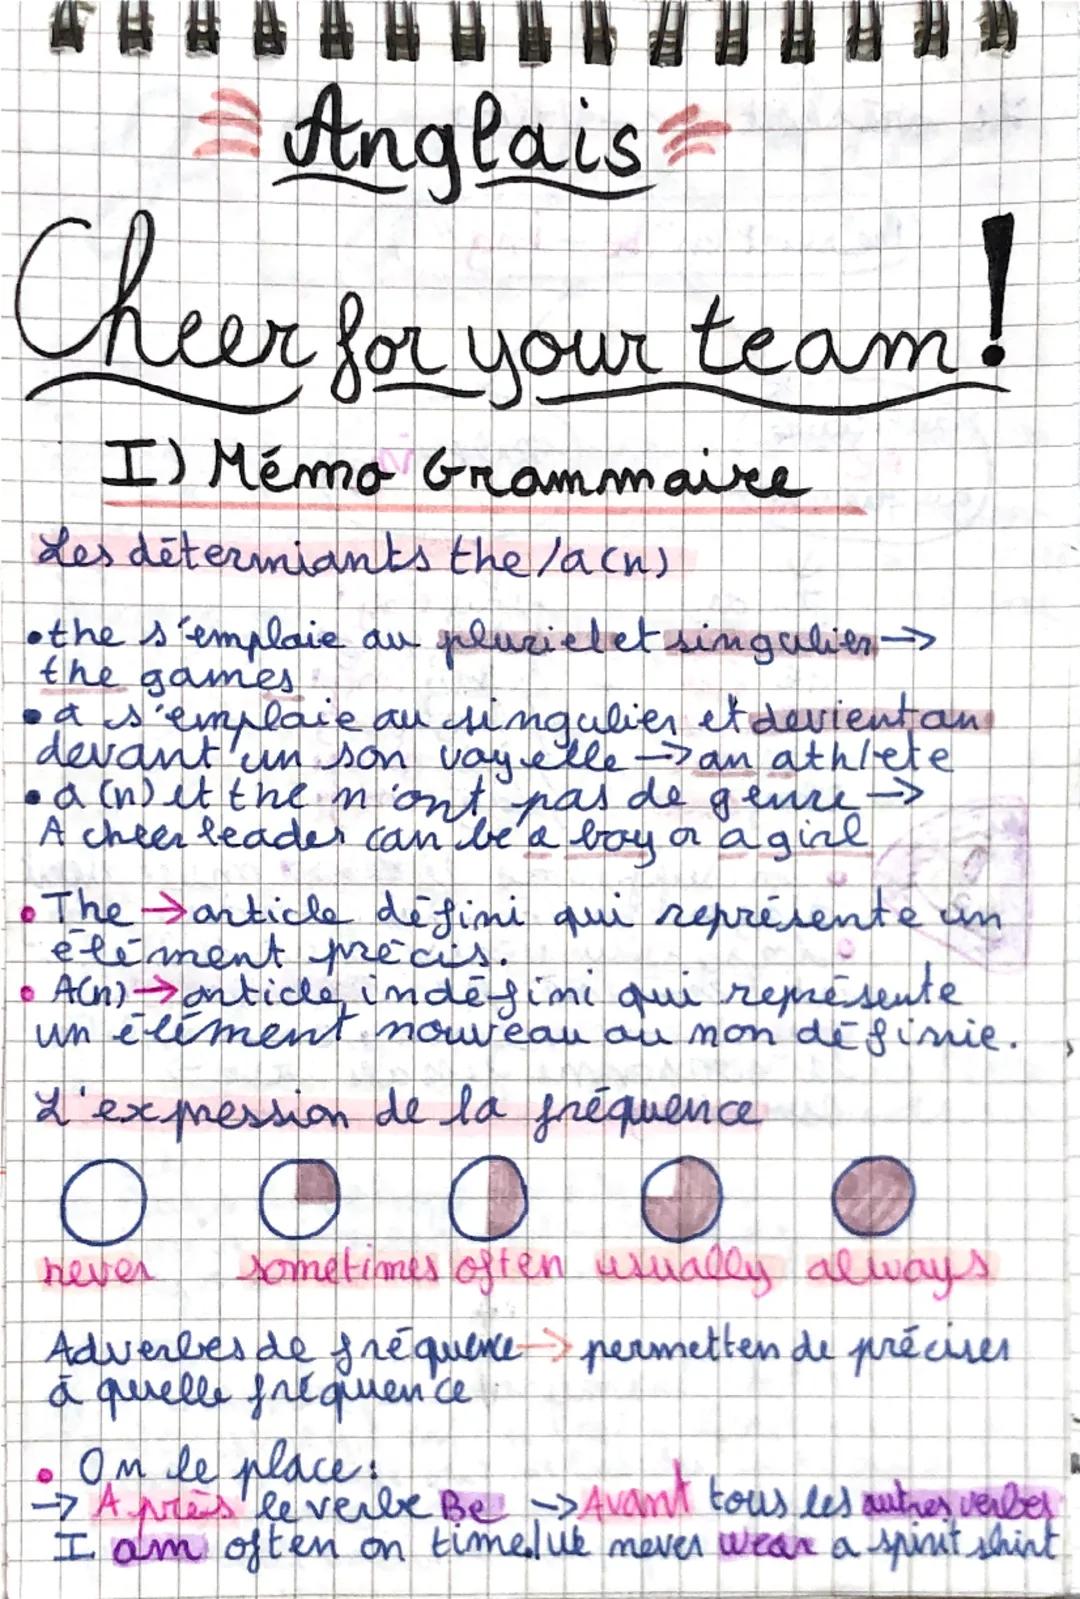 Anglais
Cheer for your team!
I) Mémo Grammaire
Les détermiants the/a(n)
•the s'emploie au pluriel et singulier→
the games
•a s'emploie au singulier et devient an
devant un son voyelle→an athlete
•a(n) et the n'ont pas de genre→
A cheerleader can be a boy or a girl
•The→article défini qui représente un
élément précis.
•A(n)→article indéfini qui représente
un élément nouveau ou non définie.
L'expression de la fréquence
never sometimes often usually always
Adverbes de fréquence→permetten de préciser
à quelle fréquence
• On le place:
→Après le verbe Be →Avant tous les autres verbes
I am often on time/we never wear a spirit shirt